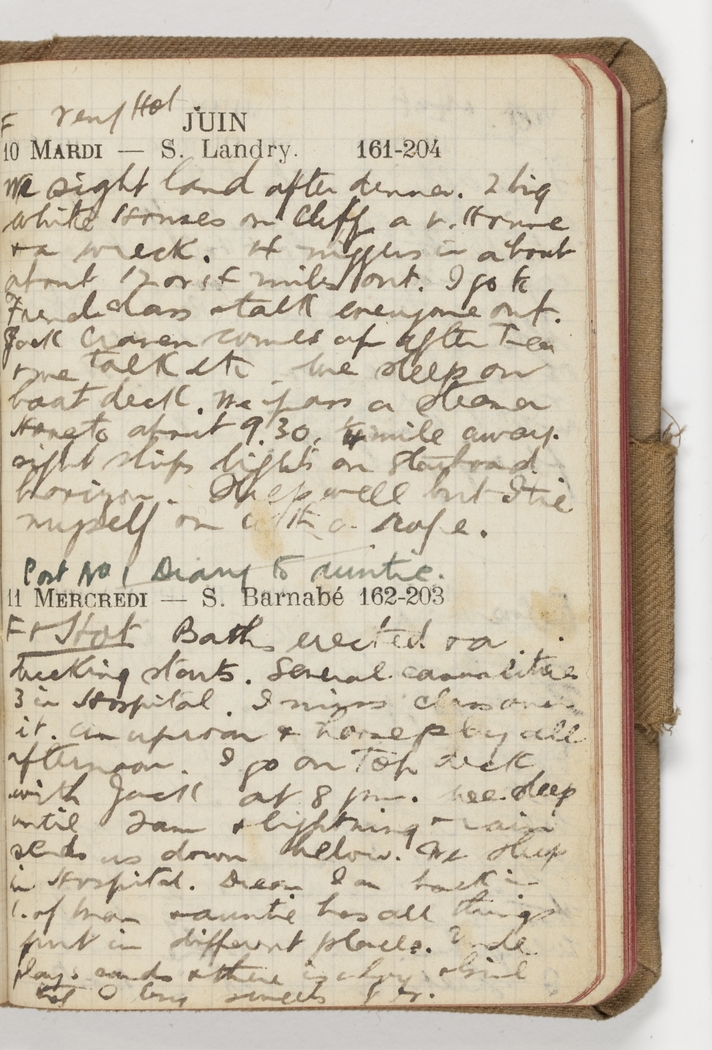 F very Hot
JUIN
10 MARDI — S. Landry. 161-204
We sight land after dinner. 2 big
white Houses on cliff a
+ a wreck. 4 niggers in a boat
about 12 or 14 miles out. I go to
French class + talk everyone out.
Jack Craven comes up after Tea
+ we talk etc we sleep on
boat deck. We pass a steamer
Hove to about 9.30, mile away.
sight ships lights on Starboard
horizon. Sleep well but I tie
myself on with a rope.
Post No 1 Diary to auntie.
11 MERCREDI — S. Barnabé 162-203
F + Hot Baths erected + a
ducking starts. Several casualities
3 in Hospital. I miss class over
it. An uproar + horseplay all
afternoon. I go on Top deck
with Jack at 8 pm. We sleep
until 2am + lightning + rain
sends us down below. We sleep
in Hospital. Dream I am back in
I. of man + auntie has all things
put in different places. Uncle
plays cards + there is a boy
buy sweets